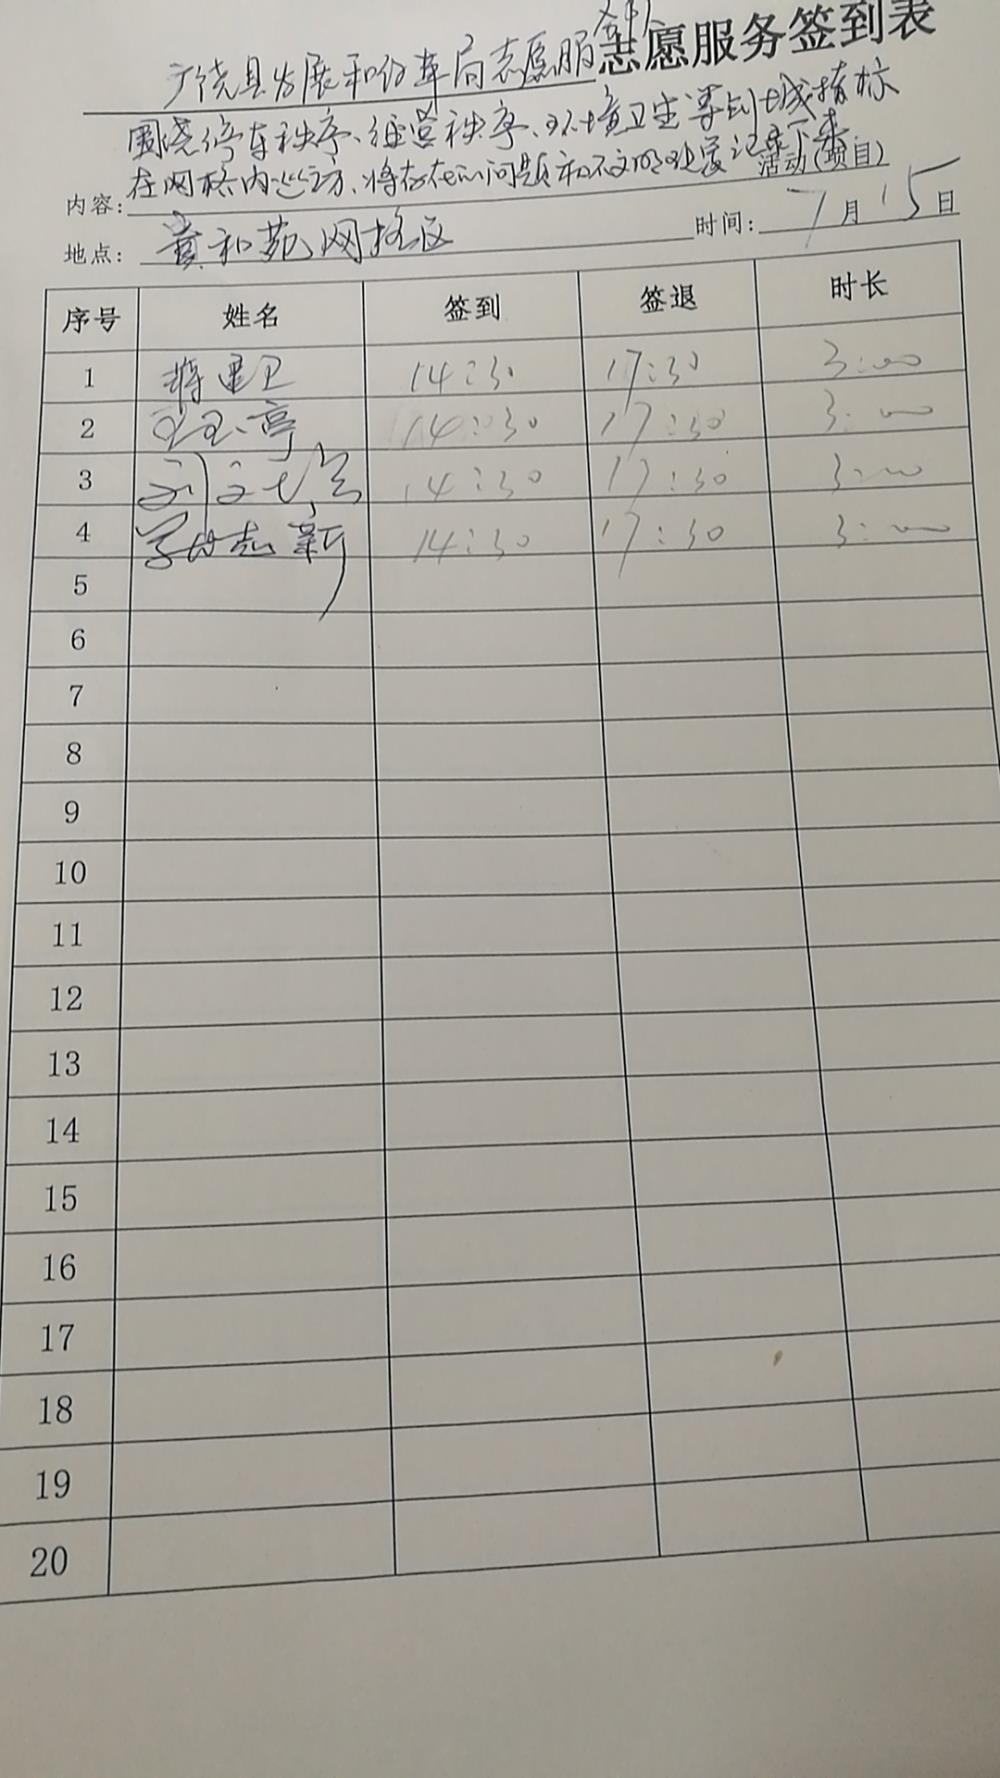 广饶县发展和改革局志愿服务中心志愿服务签到表
围绕停车秩序、经营秩序、环境卫生等创城指标
在网格内巡访、将存在的问题和不文明现象记录下来
内容: 活动(项目)
地点: 黄和苑网格区 时间: 7月15日
序号 姓名 签到 签退 时长
1 蒋建卫 14:30 17:30 3:00
2 14:30 17:30 3:00
3 14:30 17:30 3:00
4 志新 14:30 17:30 3:00
5
6
7
8
9
10
11
12
13
14
15
16
17
18
19
20